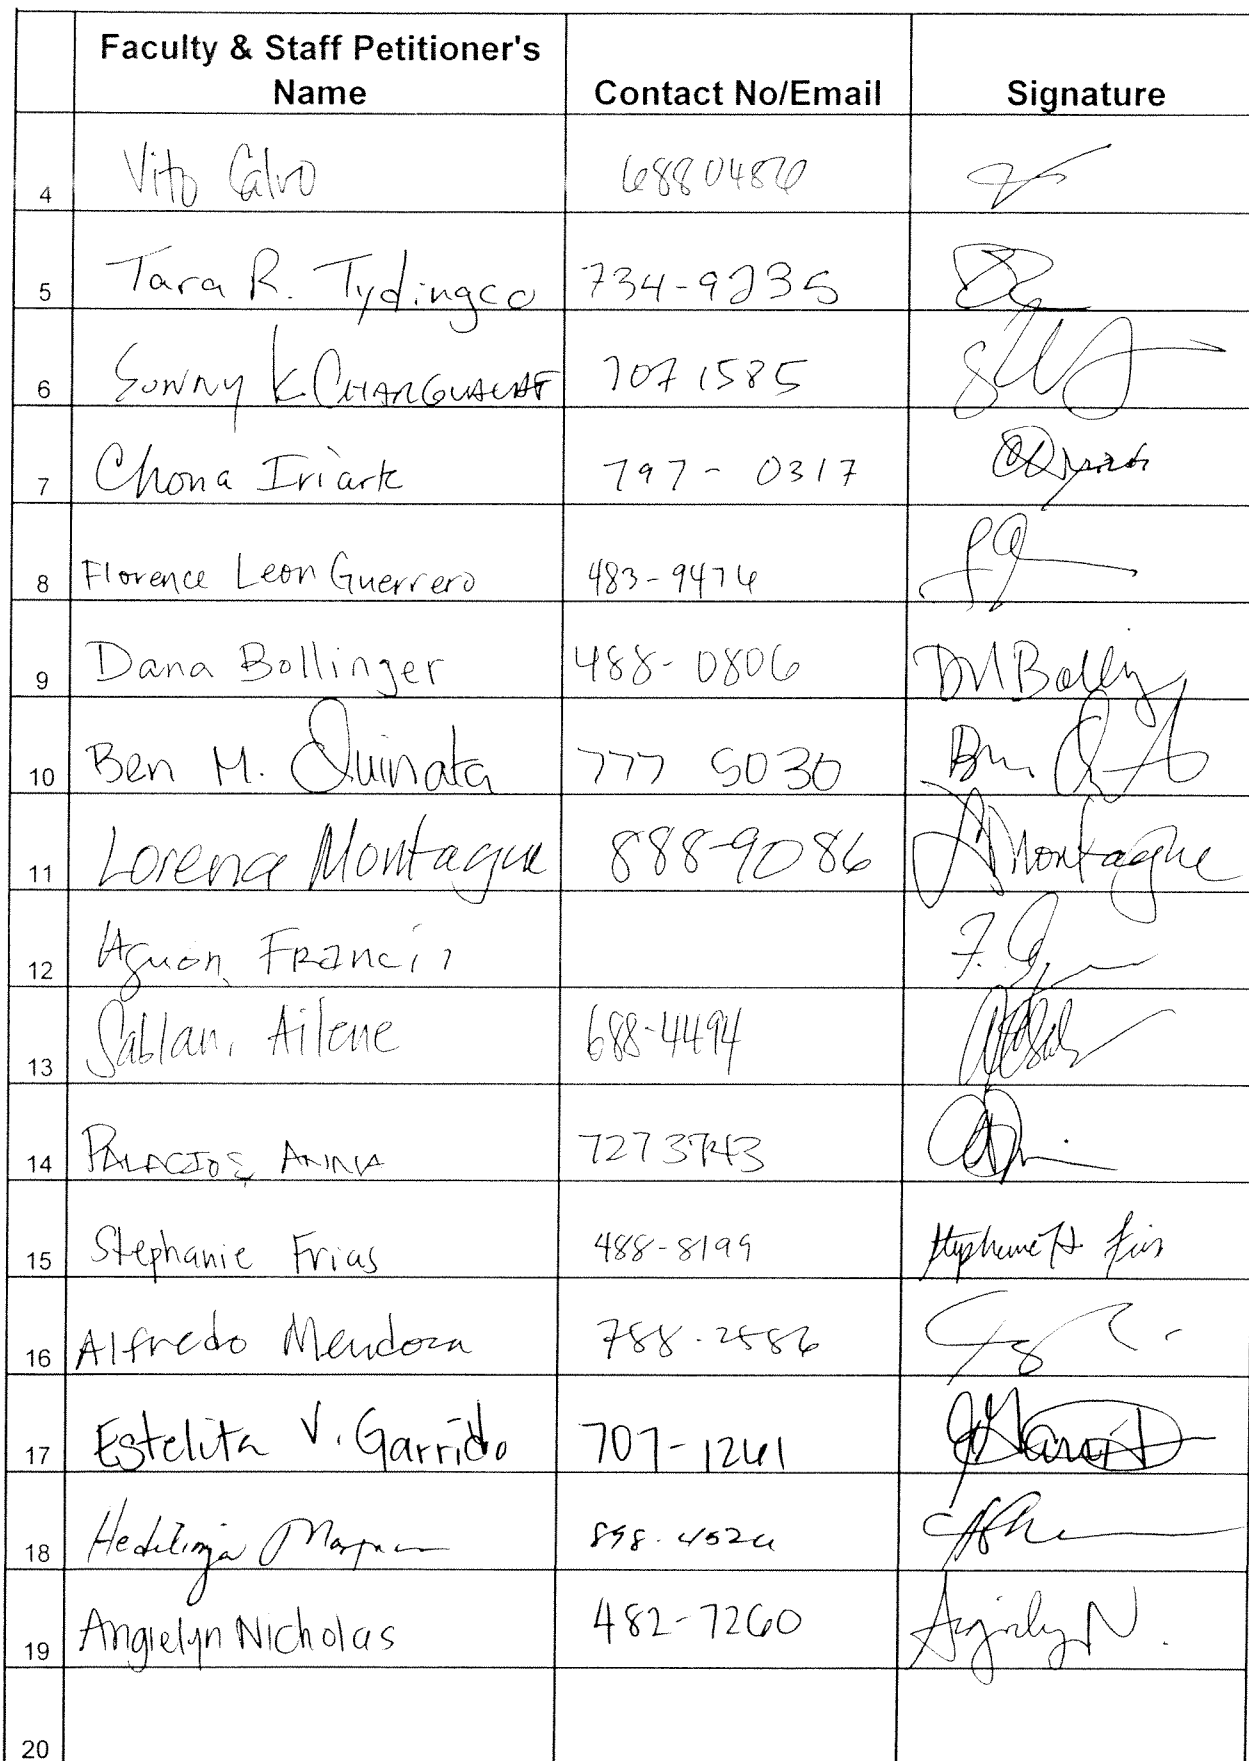 Faculty & Staff Petitioner's
Name Contact No/Email Signature
4 Vito Calvo 6880486
5 Tara R. Tydingco 734-9235
6 Sunny K. CHARGUALAF 7071585
7 Chona Iriarte 797-0317
8 Florence Leon Guerrero 483-9476
9 Dana Bollinger 488-0806
10 Ben M. Quinata 777 5030
11 Lorena Montague 888-9086 Montague
12 Aguon, Francis
13 Sablan, Ailene 688-4494
14 PALACIOS, ANNA 7273743
15 Stephanie Frias 488-8199
16 Alfredo Mendoza 788-2586
17 Estelita V. Garrido 707-1261
18
19 Angielyn Nicholas 482-7260
20